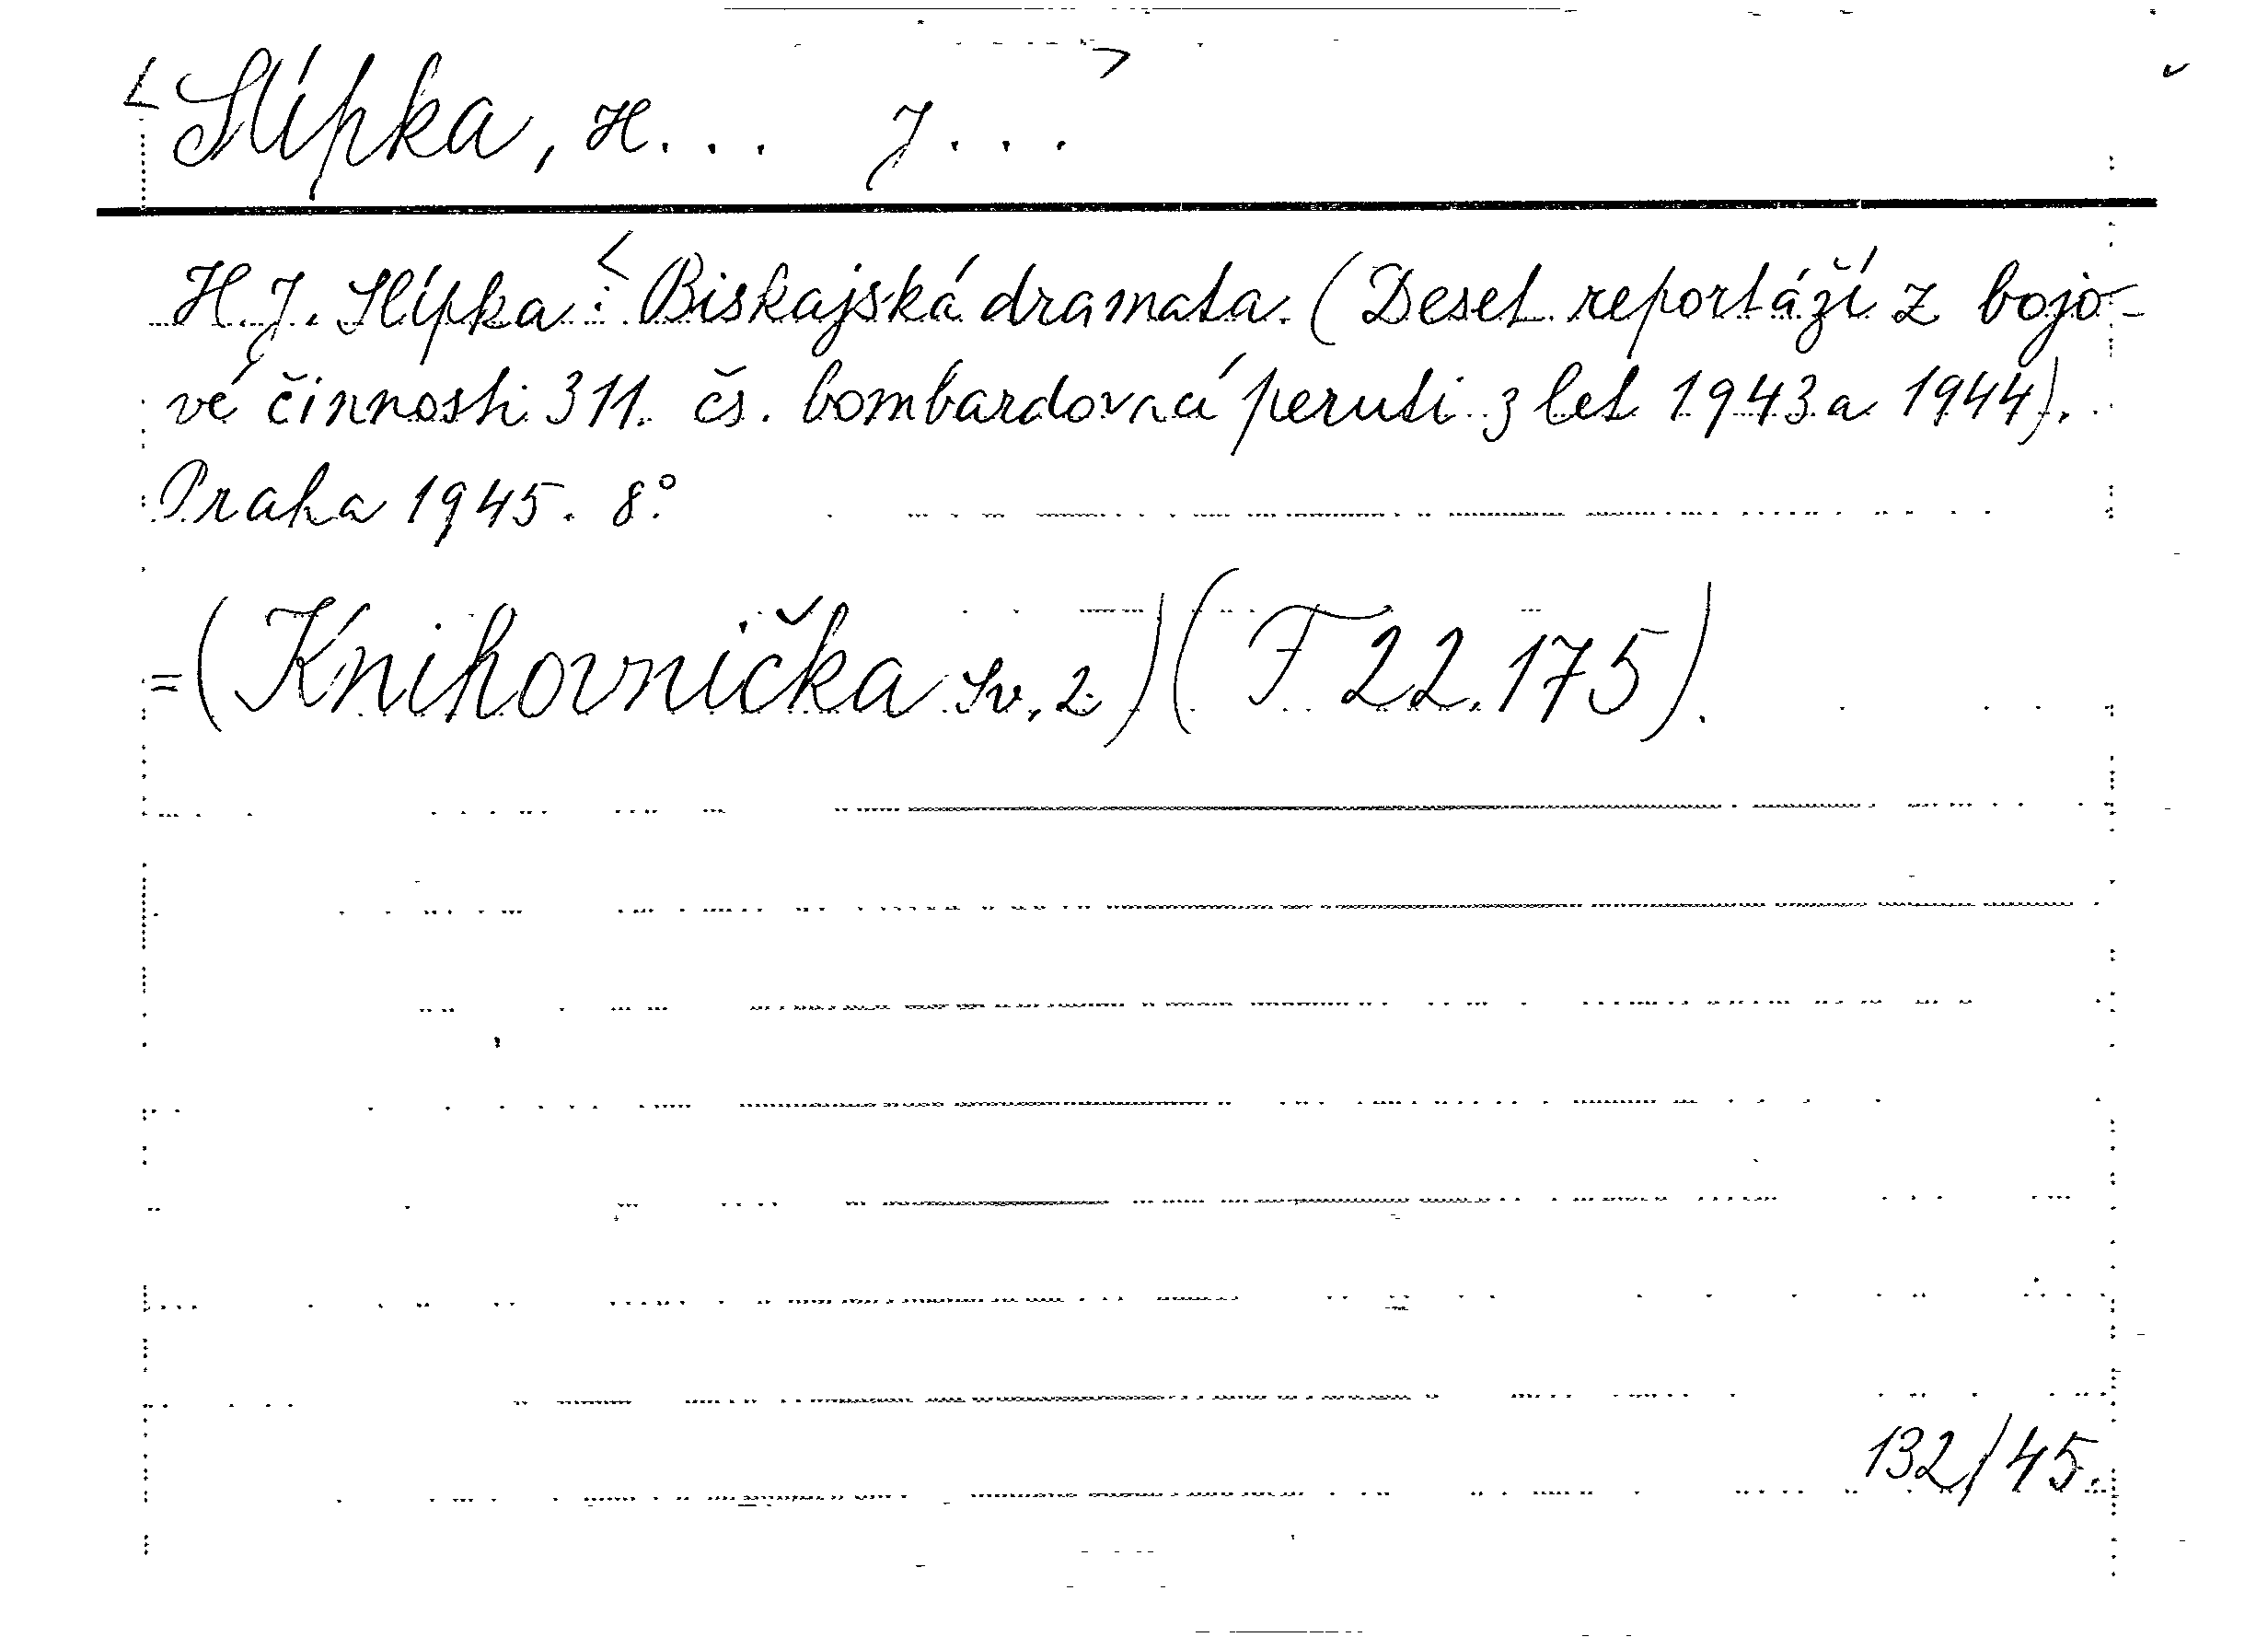 Slípka, H... J...
H. J. Slípka: Biskajská dramata. (Deset reportáží z bojo-
vé činnosti 311. čs. bombardovací peruti z let 1943 a 1944).
Praha 1945. 8°.
=(Knihovnička sv. 2)(F 22.175).
132/45.